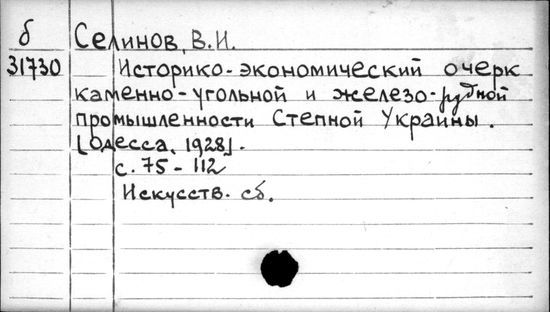 б Селинов, В.И.
31730 Историко-экономический очерк
каменно-угольной и железо-рудной
промышленности Степной Украины.
[Одесса, 1928].
с. 75-112
Искусств. сб.